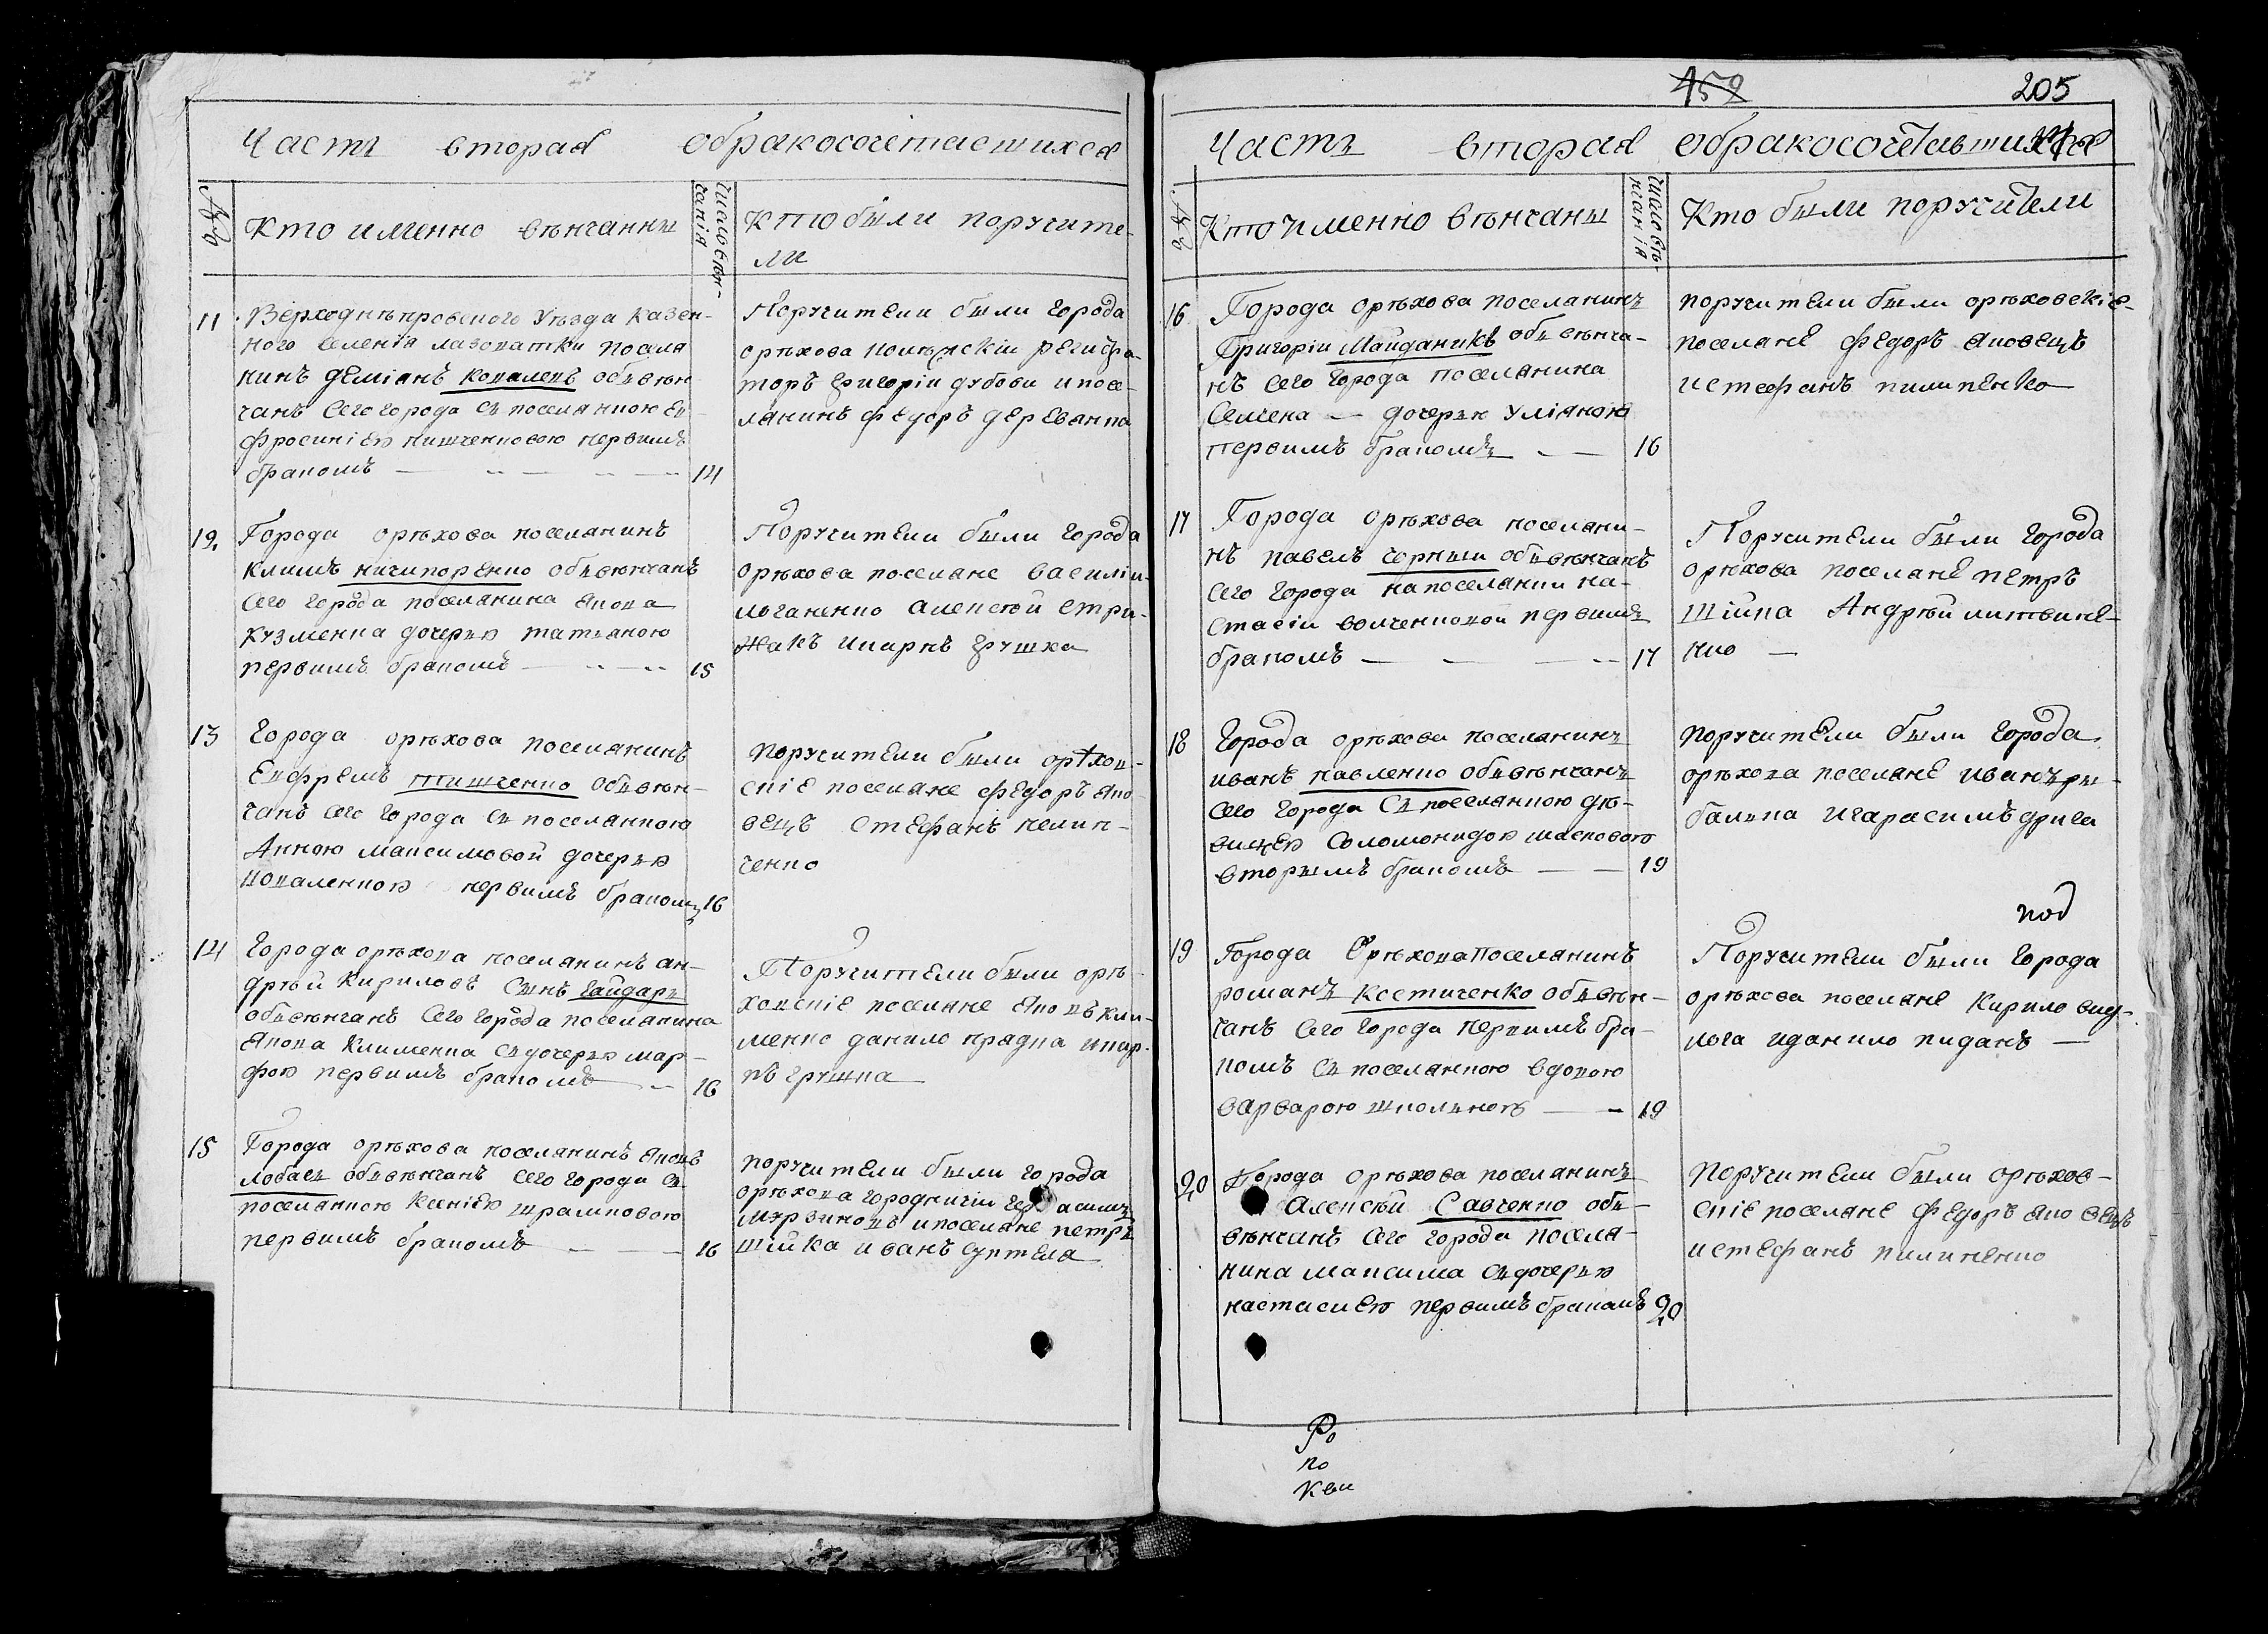 Часть вторая обракосочетаешихся
№
Кто именно вѣнчанны
Число вѣн-
чанія
Кто были поручите-
ли
11
Верходнѣпровского уѣзда казен-
ного селенія лазоватки поселя
нинъ Деміанъ Ковалевъ обвѣн
чанъ сего города съ поселянкою Ев
фросиніею нишченковою первимъ
бракомъ
14
Поручители были города
орѣхова регистра-
торъ григорій дубови и посе-
лянинъ федоръ деревянка
12.
Города орѣхова поселянинъ
климъ ничипоренко обвѣнчанъ
сего города поселянина якова
кузменка дочерью татіаною
первимъ бракомъ
15
Поручители были города
орѣхова поселяне василій
логаненко алексѣй стри-
жакъ икарнъ грушка
13
Города орѣхова поселянинъ
Евфремъ тищенко обвѣн-
чанъ сего города съ поселянкою
Анною максимовой дочерью
коваленкою первимъ бракомъ
16
поручители были орѣхов-
скіе поселяне федоръ яко
вецъ стефанъ пелип-
ченко
14
Города орѣхова поселянинъ ан-
дрѣй кириловъ сынъ гайдаръ
обвѣнчанъ сего города поселянина
якова клименка съ дочерью мар-
фою первимъ бракомъ
16
Поручители были орѣ-
ховскіе поселяне яковъ кли-
менко данило прядка икар-
пъ грушка
15
Города орѣхова поселянинъ яковъ
лобасъ обвѣнчанъ сего города съ
поселянкою ксеніею шрамковою
первимъ бракомъ
16
поручители были города
орѣхова городничій герасимъ
мурзиновъ и поселяне петръ
шійка иванъ суптеля
459 205
Часть вторая обракосочетавшихся
№
Кто именно вѣнчаны
Число вѣ-
нчанія
Кто были поручители
16
Города орѣхова поселянинъ
Григорій Майданикъ обвѣнча-
нъ сего города поселянина
Семена — дочерью уліяною
первимъ бракомъ
16
поручители были орѣховскіе
поселяне федоръ яковецъ
и стефанъ пилипенко
17
Города орѣхова поселяни-
нъ павелъ чорный обвѣнчанъ
сего города на поселянки на-
стасіи волченковой первимъ
бракомъ
17
Поручители были города
орѣхова поселяне петръ
шійка Андрѣй литвине-
нко
18
Города орѣхова поселянинъ
иванъ павленко обвѣнчанъ
сего города съ поселянкою дѣ-
вицею Соломонидою шасковою
вторымъ бракомъ
19
поручители были города
орѣхова поселяне иванъ ры-
балка и гарасимъ дрига
под
19
Города Орѣхова Поселянинъ
романъ Костиченко обвѣн-
чанъ сего города первимъ бра-
комъ съ поселянкою вдовою
варварою школьною
19
Поручители были города
орѣхова поселяне Кирило вид-
лога и данило пиданъ
20
Города орѣхова поселянинъ
Алексѣй Савченко об-
вѣнчанъ сего города поселя-
нина максима съ дочерью
настасиею первимъ бракомъ
20
Поручители были орѣхов-
скіе поселяне федоръ яковецъ
и стефанъ пилипенко
Ро
по
Кви